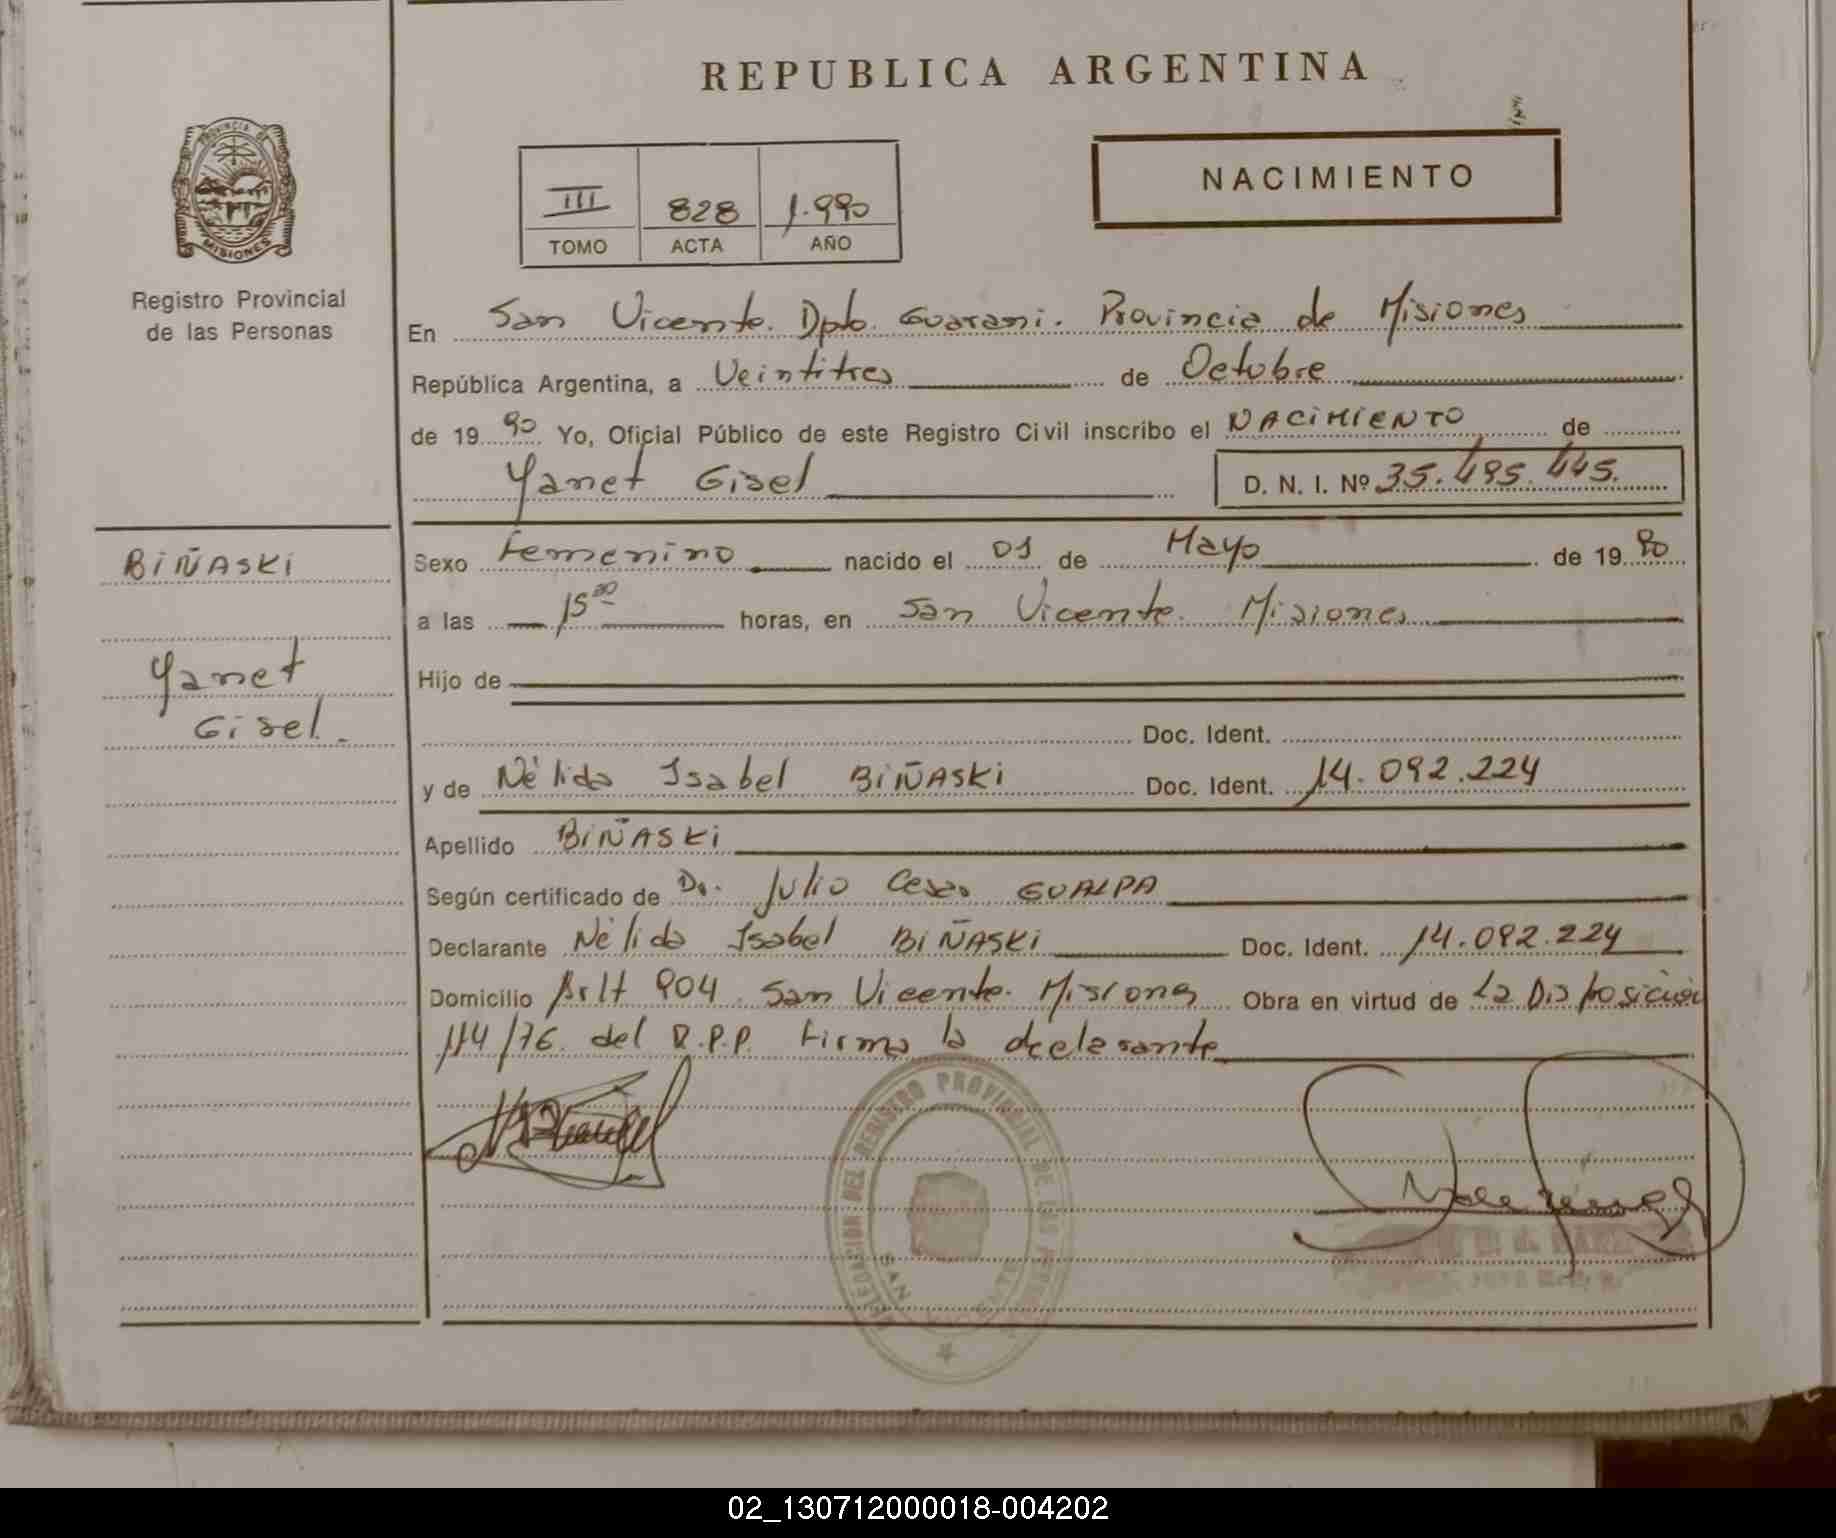 REPUBLICA ARGENTINA
PROVINCIA DE
MISIONES
Registro Provincial
de las Personas
III 828 1.990
TOMO ACTA AÑO
NACIMIENTO
En San Vicente. Dpto. Guarani. Provincia de Misiones
República Argentina, a Veintitres de Octubre
de 1990 Yo, Oficial Público de este Registro Civil inscribo el NACIMIENTO de
Yanet Gisel D. N. I. Nº 35.495.445.
BIÑASKI
Yanet
Gisel.
Sexo Femenino nacido el 01 de Mayo de 1990
a las 15 00 horas, en San Vicente. Misiones
Hijo de
Doc. Ident.
y de Nélida Isabel BIÑASKI Doc. Ident. 14.092.224
Apellido BIÑASKI
Según certificado de Dr. Julio Cesar GUALPA
Declarante Nélida Isabel BIÑASKI Doc. Ident. 14.092.224
Domicilio 904 San Vicente. Misiones Obra en virtud de La Disposición
114/76. del R.P.P. Firma la declarante
DELEGACION DEL REGISTRO PROVINCIAL DE LAS
SAN
02_130712000018-004202